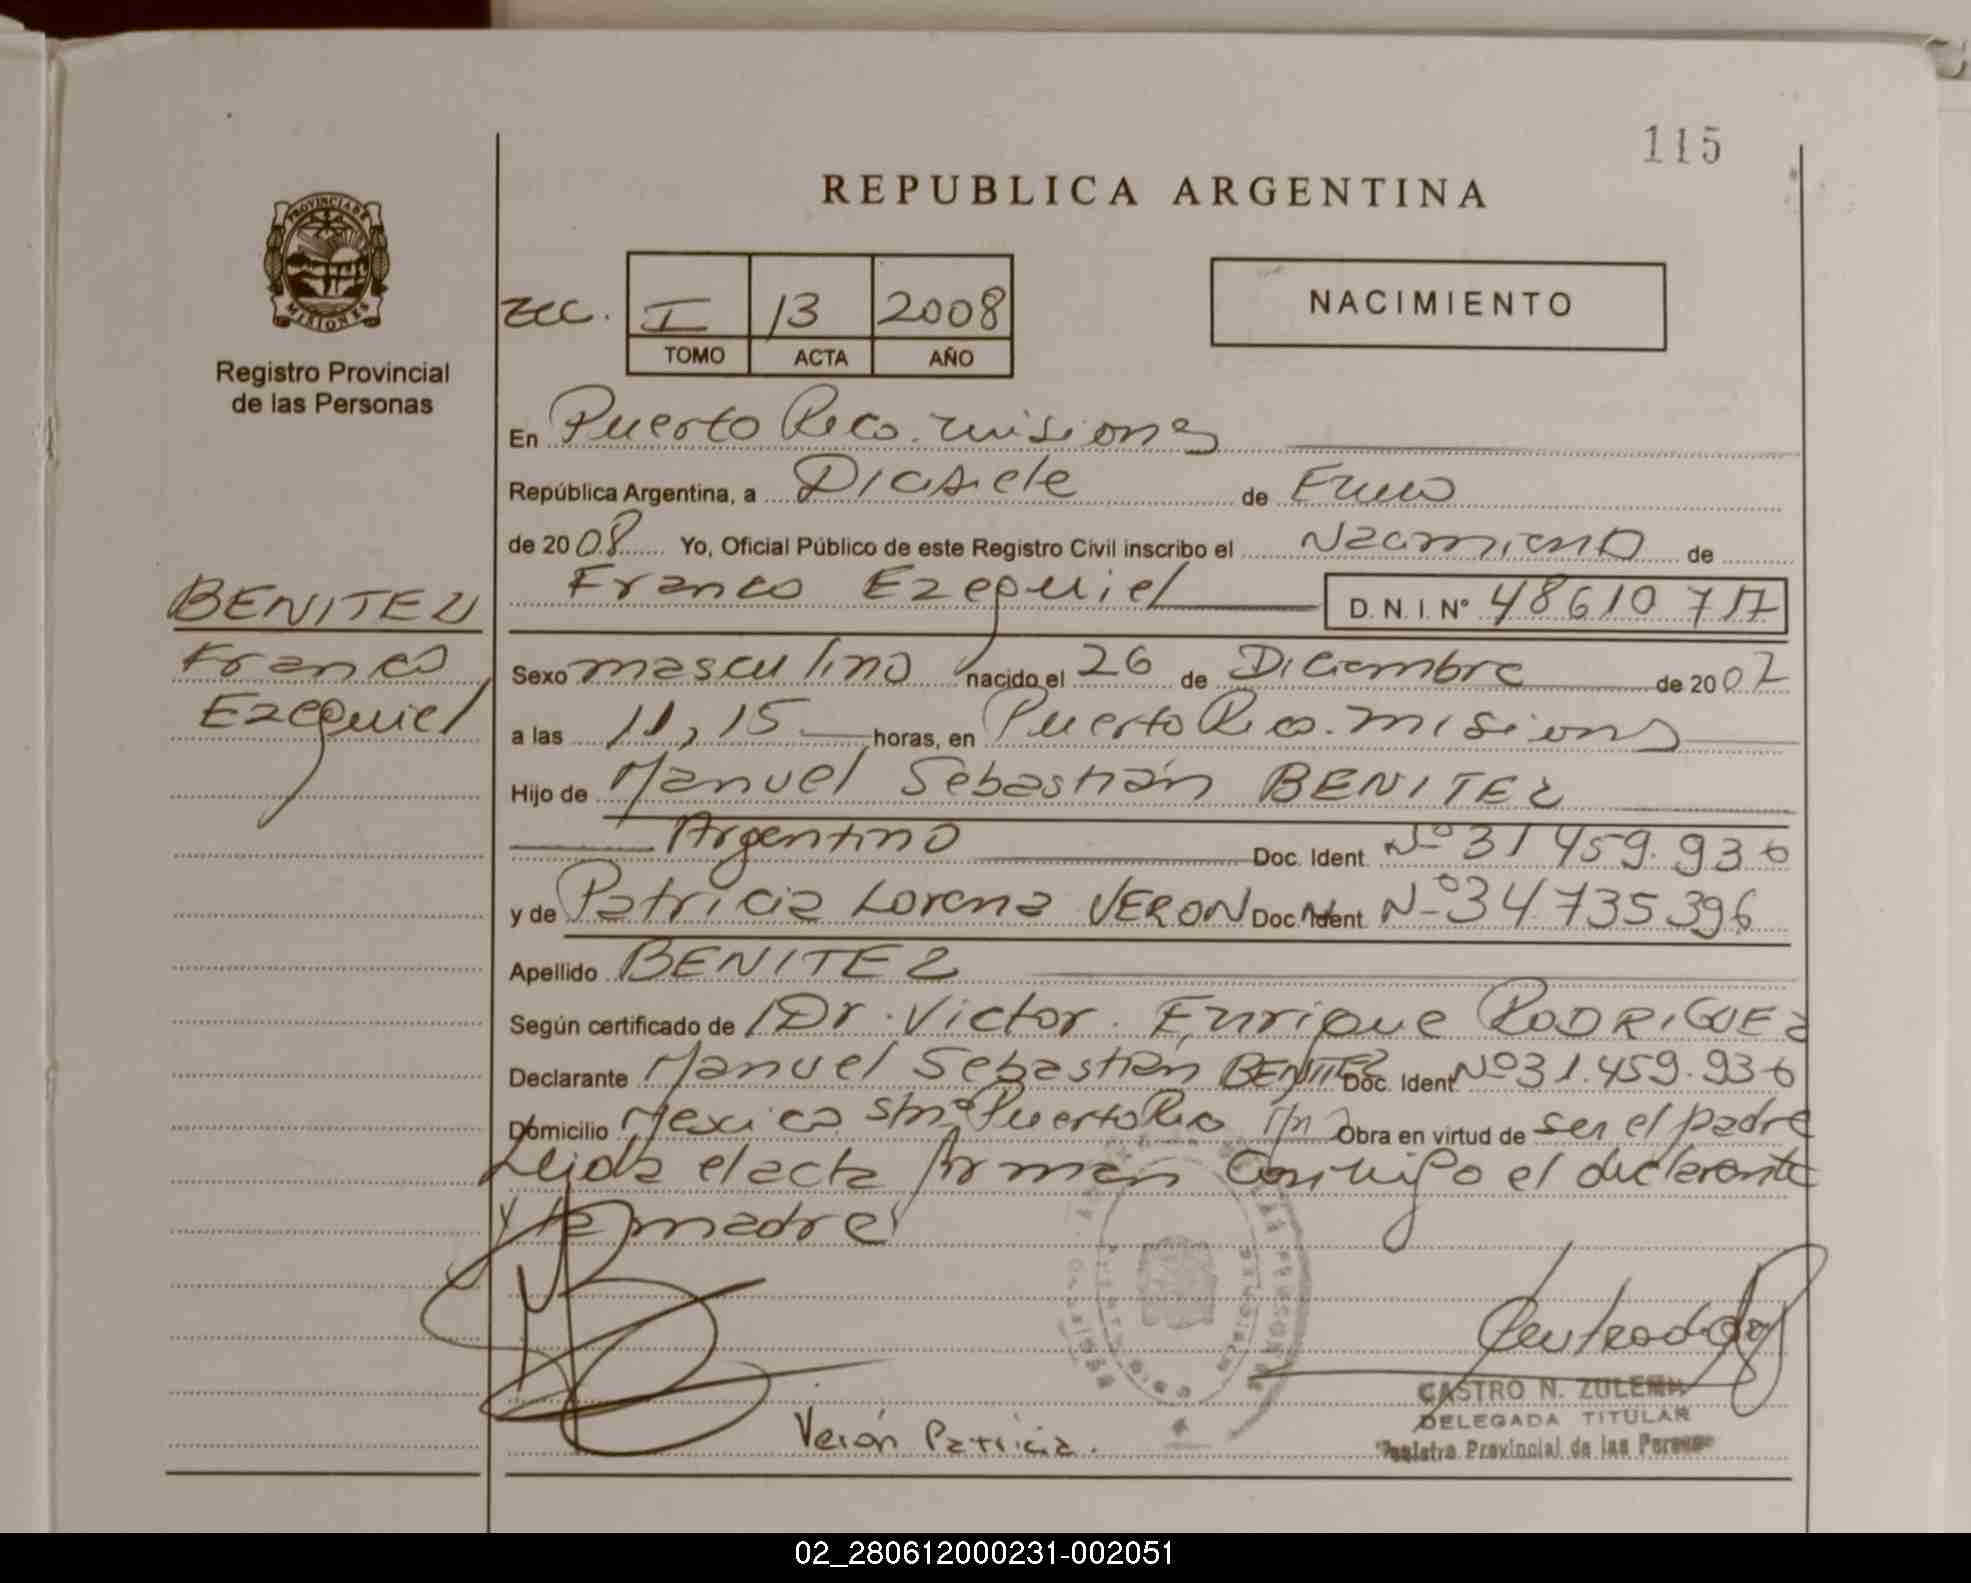 115
REPUBLICA ARGENTINA
PROVINCIA DE
MISIONES
Registro Provincial
de las Personas
I 13 2008
TOMO ACTA AÑO
NACIMIENTO
En Puerto Rico. misiones
República Argentina, a Diasiete de Enero
de 2008 Yo, Oficial Público de este Registro Civil inscribo el Nacimiento de
Franco Ezequiel D. N. I. Nº 48610 717
BENITEZ
Franco
Ezequiel
Sexo masculino nacido el 26 de Diciembre de 2007
a las 11,15 horas, en Puerto Rico. misiones
Hijo de Manuel Sebastián BENITEZ
Argentino Doc. Ident. Nº 31 459.936
y de Patricia Lorena VERON Doc. Ident. Nº 34 735 396
Apellido BENITEZ
Según certificado de Dr. Victor Enrique RODRIGUEZ
Declarante Manuel Sebastián BENITEZ Doc. Ident. Nº 31.459.936
Domicilio Mexico s/nº Puerto Rico Obra en virtud de ser el padre
Leida el acta firman conmigo el declarante
y la madre
Verón Patricia.
CASTRO N. ZULEMA
DELEGADA TITULAR
Registro Provincial de las Personas
02_280612000231-002051